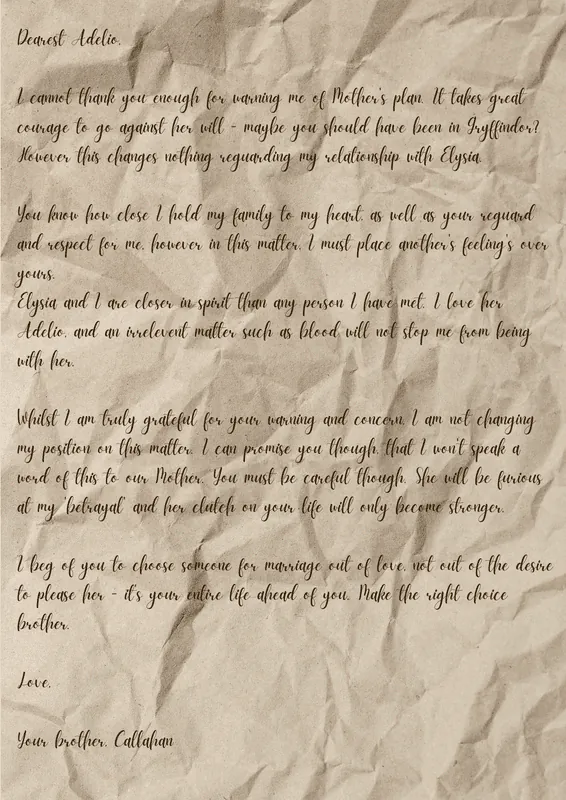 Dearest Adelio,
I cannot thank you enough for warning me of Mother's plan. It takes great
courage to go against her will - maybe you should have been in Gryffindor?
However this changes nothing reguarding my relationship with Elysia.
You know how close I hold my family to my heart, as well as your reguard
and respect for me, however in this matter, I must place another's feeling's over
yours.
Elysia and I are closer in spirit than any person I have met. I love her
Adelio, and an irrelevent matter such as blood will not stop me from being
with her.
Whilst I am truly grateful for your warning and concern, I am not changing
my position on this matter. I can promise you though, that I won't speak a
word of this to our Mother. You must be careful though. She will be furious
at my 'betrayal' and her clutch on your life will only become stronger.
I beg of you to choose someone for marriage out of love, not out of the desire
to please her - it's your entire life ahead of you. Make the right choice
brother.
Love,
Your brother, Callahan